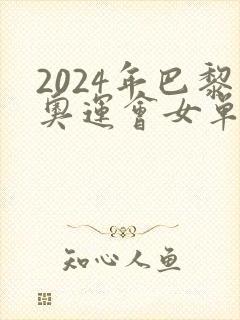 2024年巴黎
奥運會女單
知心人鱼